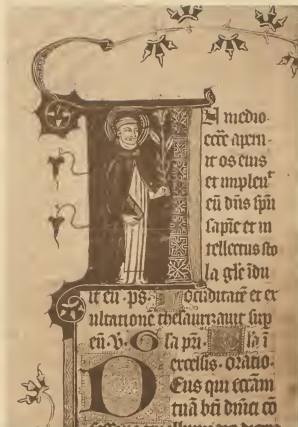 In medio
ecce aperu
it os eius
et impleu^t
eū dn̄s spū
sapīe et in
tellectus sto
la glē īdu
it eū · ps · Jocūditatē et ex
ultationē thesaurizauit sup
eū V. Gla pr̄i.
excelsis. Oratio.
Deus qui eccām
tuā bt̄i dm̄ici cō